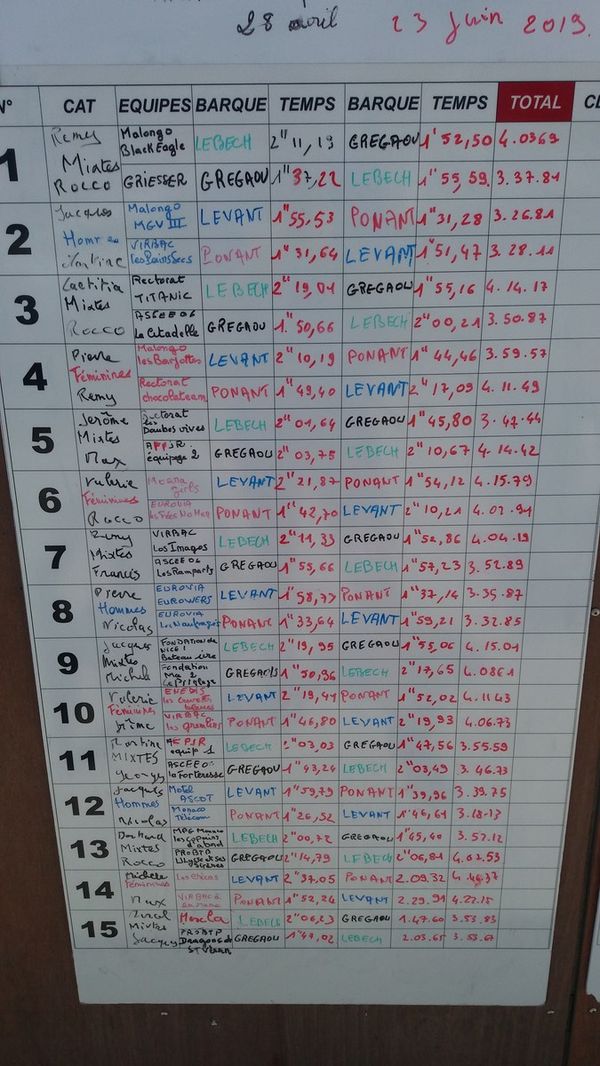 28 avril 23 juin 2019.
N° CAT EQUIPES BARQUE TEMPS BARQUE TEMPS TOTAL
1 Remy Malongo Black Eagle LEBECH 2"11,19 GREGAOU 1'52,50 4.0369
Mixtes
Rocco GRIESSER GREGAOU 1"37,22 LEBECH 1"55,59. 3.37.81
2 Jacques Malongo MGV III LEVANT 1"55.53 PONANT 1"31,28 3.26.81
VIRBAC les Bains Secs PONANT 1"31,64 LEVANT 1"51,47 3.28.11
3 Laetitia Rectorat TITANIC LEBECH 2"19,01 GREGAOU 1"55,16 4.14.17
Mixtes
Rocco ASCEE06 La Citadelle GREGAOU 1"50,66 LEBECH 2"00,21 3.50.87
4 Pierre Malongo les Barjottes LEVANT 2"10,19 PONANT 1"44,46 3.59.57
Féminines
Remy Rectorat chocolateam PONANT 1"49,40 LEVANT 2"17,09 4.11.49
5 Jerôme Rectorat les Doubes vives LEBECH 2"01,64 GREGAOU 1"45,80 3.47.44
Mixtes
Max équipage 2 GREGAOU 2"03,75 LEBECH 2"10,67 4.14.42
6 Valerie Moana girls LEVANT 2"21,87 PONANT 1"54,12 4.15.79
Féminines
Rocco EUROVIA PONANT 1"42,70 LEVANT 2"10,21
7 Remy VIRBAC Los Images LEBECH 2"11,33 GREGAOU 1"52,86 4.04.19
Mixtes
Francis ASCEE06 Los Ramparts GREGAOU 1"55,66 LEBECH 1"57,23 3.52.89
8 Pierre EUROVIA EUROWERS LEVANT 1"58,73 PONANT 1"37,14 3.35.87
Hommes
Nicolas EUROVIA PONANT 1"33,64 LEVANT 1"59,21 3.32.85
9 Jacques FONDATION DE NICE 1 LEBECH 2"19,95 GREGAOU 1"55,06 4.15.01
Mixtes
Michele Fondation 2 1"50,96 LEBECH 2"17,65 4.0861
10 Valerie ENEDIS LEVANT 2"19,41 PONANT 1"52,02 4.11.43
Féminines
Jérôme VIRBAC les gremlins PONANT 1"46,80 LEVANT 2"19,93 4.06.73
11 Martine équipe 1 LEBECH 2"03,03 GREGAOU 1"47,56 3.55.59
MIXTES
Georges ASCEE06 la Forteresse GREGAOU 1"43,24 LEBECH 2"03,49 3.46.73
12 Jacques Motel ASCOT LEVANT 1"59,79 PONANT 1"39,96 3.39.75
Hommes
Nicolas Monaco Télécom PONANT 1"26,52 LEVANT 1"46,61 3.13.13
13 les copains d'abord LEBECH 2"00,72 GREGAOU 1"45,40 3.57.12
Mixtes
Rocco PROBTP Ulysse et ses Sirènes GREGAOU 2"14,79 LEBECH 2"06,81
14 Michele Los chicas LEVANT 2"37,05 PONANT 2.09.32
Féminines
Max VIRBAC PONANT 1"52,24 LEVANT 2.29.91 4.22.15
15 Hercla LEBECH 2"06,23 GREGAOU 1.47.60 3.53.83
Mixtes
Jacques PROBTP Dragons de St Véran GREGAOU 1"47,02 LEBECH 2.03.65 3.53.67